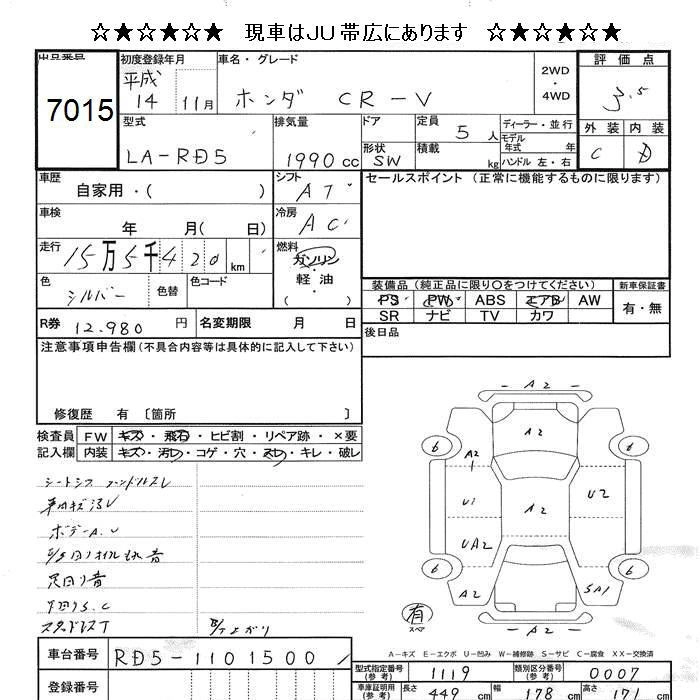 ☆★☆★☆ 現車はJU帯広にあります ☆★☆★☆
出品番号 7015
初度登録年月 平成 14 11月
車名・グレード ホンダ CR-V
2WD・4WD
評価点 3.5
外装 C 内装 D
型式 LA-RD5
排気量 1990 cc
ドア
形状 SW
定員 5 人
積載 kg
ディーラー・並行
モデル年式 年
ハンドル 左・右
車歴 自家用・( )
シフト AT
セールスポイント (正常に機能するものに限ります)
車検 年 月( 日)
冷房 AC
走行 15万5千420 km
燃料 ガソリン・軽油・( )
色 シルバー 色替 色コード
装備品 (純正品に限り○をつけてください) 新車保証書
PS PW ABS エアB AW 有・無
SR ナビ TV カワ
R券 12.980 円 名変期限 月 日
後日品
注意事項申告欄(不具合内容等は具体的に記入して下さい)
修復歴 有 〔箇所 〕
検査員記入欄
FW キズ・飛石・ヒビ割・リペア跡・×要
内装 キズ・汚レ・コゲ・穴・スレ・キレ・破レ
シートシワ ハンドルスレ
車内キズ汚レ
ボデーA.U
足回り音
下回りS.C
スタッドレスT
A2
A2
A2
U1
A2
U2
UA2
A2
SA1
A2
6
6
6
6
有 スペア
A-キズ E-エクボ U-凹み W-補修跡 S-サビ C-腐食 XX-交換済
車台番号 RD5-1101500
登録番号
型式指定番号(参考) 1119 類別区分番号(参考) 0007
車庫証明用(参考) 長さ 449 cm 幅 178 cm 高さ 171 cm